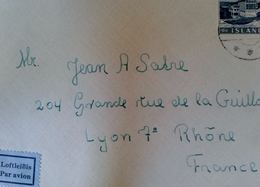 ISLAND
Mr. Jean A Sabre
204 Grande rue de la Guill
Lyon 7e Rhône
France
Loftleiðis
Par avion